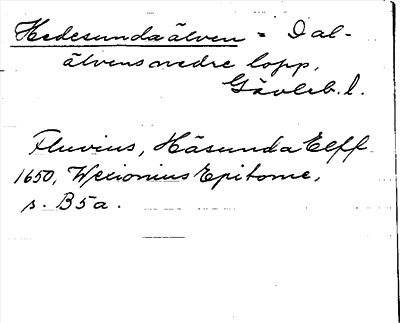 Hedesundaälven = Dal-
älvens nedre lopp,
Gävleb. l.
Fluvius, Häsunda Elff
1650, Wexionius Epitome,
s. B5a.